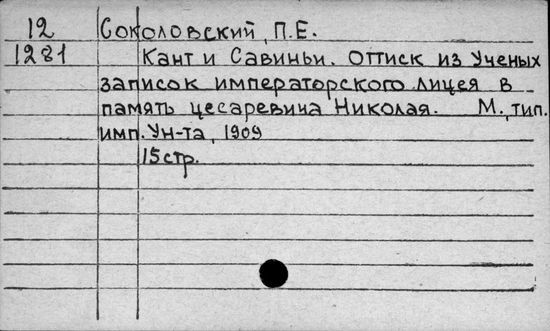 12 Соколовский, П.Е.
1281 Кант и Савиньи. Оттиск из Ученых
записок императорского лицея в
память цесаревича Николая. М., тип.
имп. Ун-та, 1909
15 стр.